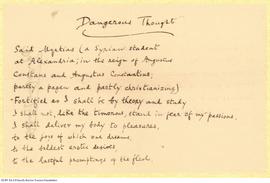 Dangerous Thought
Said Myrtias (a Syrian student
at Alexandria; in the reign of Augustus
Constans and Augustus Constantius;
partly a pagan and partly christianizing)
- Fortified as I shall be by theory and study
I shall not, like the timorous, stand in fear of my passions,
I shall deliver my body to pleasures,
to the joys of which one dreams,
to the boldest erotic desires,
to the lustful promptings of the flesh,